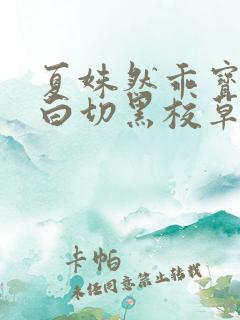 夏妹然乖宝
白切黑校草
卡帕
未经同意禁止转载